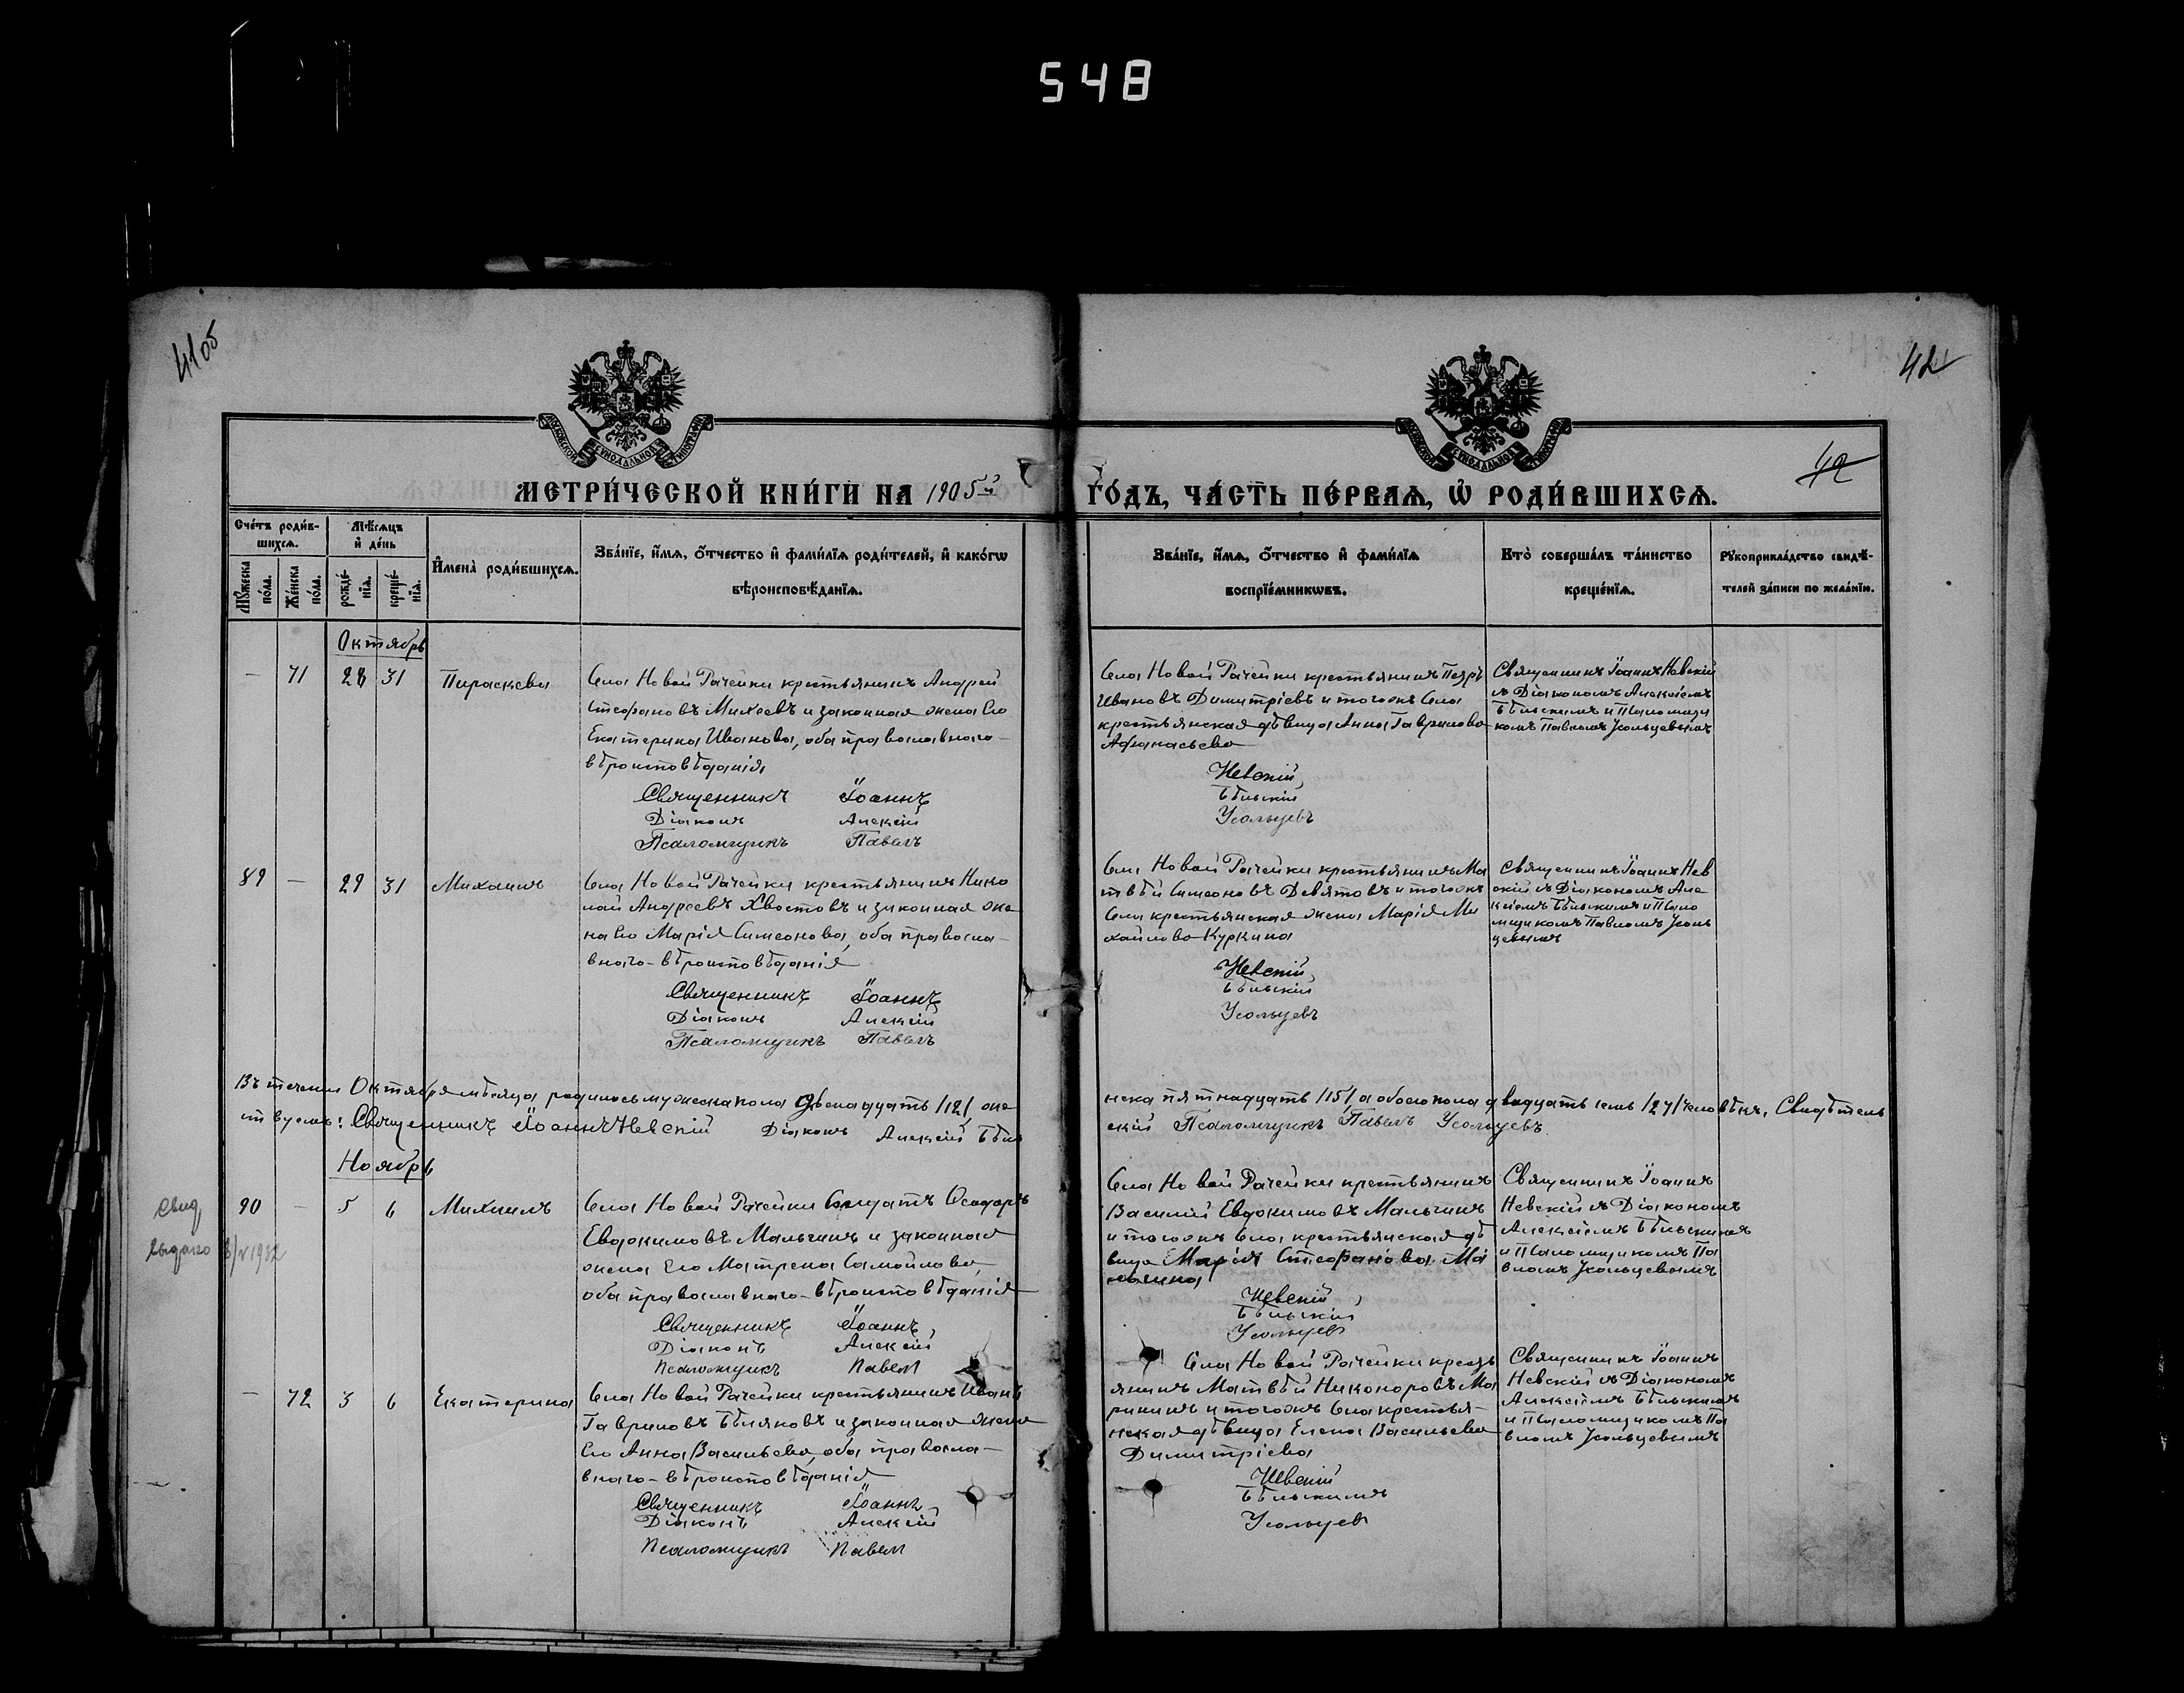 548
4105
42
42
МЕТРИ́ЧЕСКОЙ КНИ́ГИ НА 1905й ГО́ДЪ, ЧА́СТЬ ПЕ́РВАѦ, Ѡ҆ РОДИ́ВШИХСѦ.
Сче́тъ роди́в-
шихсѧ.
Мѣ́сѧцъ
и҆ де́нь
Мꙋ́жеска
по́ла.
Же́нска
по́ла.
рожде́-
нїѧ.
креще́-
нїѧ.
И҆мена̀ роди́вшихсѧ.
Зва́нїе, и҆́мѧ, ѻ҆́тчество и҆ фами́лїѧ роди́телей, и҆ како́гѡ
вѣроисповѣ́данїѧ.
Зва́нїе, и҆́мѧ, ѻ҆́тчество и҆ фами́лїѧ
воспрїе́мникѡвъ.
Кто̀ соверша́лъ та́инство
креще́нїѧ.
Рꙋкоприкла́дство свидѣ́-
телей за́писи по жела́нїю.
Октябрь
— 71 28 31 Параскева
Села Новой Рачейки крестьянинъ Андрей
Стефановъ Михеевъ и законная жена Его
Екатерина Иванова, оба православнаго
вѣроисповѣданія
Священникъ Іоаннъ
Діаконъ Алексій
Псаломщикъ Павелъ
Села Новой Рачейки крестьянинъ Петръ
Ивановъ Димитріевъ и тогоже Села
крестьянская дѣвица Анна Гаврилова
Афанасьева
Невскій
Бѣльскій
Усольцевъ
Священникъ Іоаннъ Невскій
съ Діакономъ Алексіемъ
Бѣльскимъ и Псаломщи
комъ Павломъ Усольцевымъ
89 — 29 31 Михаилъ
Села Новой Рачейки крестьянинъ Нико
лай Андреевъ Хвостовъ и законная же
на Его Марія Симеонова, оба правосла
внаго-вѣроисповѣданія
Священникъ Іоаннъ
Діаконъ Алексій
Псаломщикъ Павелъ
Села Новой Рачейки крестьянинъ Ма
твѣй Симеоновъ Девятовъ и тогоже
Села крестьянская жена Марія Ми
хайлова Куркина
Невскій
Бѣльскій
Усольцевъ
Священникъ Іоаннъ Нев
скій съ Діакономъ Але
ксіемъ Бѣльскимъ и Псало
мщикомъ Павломъ Усоль
цевымъ
Въ теченіи Октября мѣсяца родилось мужеска пола двенадцать /12/ же
нска пятнадцать /15/ а обоего пола двадцать семь /27/ человѣкъ. Свидѣтель
ствуемъ: Священникъ Іоаннъ Невскій Діаконъ Алексій Бѣль
скій Псаломщикъ Павелъ Усольцевъ
Ноябрь
Свид
выдано 1932
90 — 5 6 Михаилъ
Села Новой Рачейки Солдатъ Ѳеодоръ
Евдокимовъ Мальгинъ и законная
жена Его Матрена Самойлова,
оба православнаго-вѣроисповѣданія
Священникъ Іоаннъ
Діаконъ Алексій
Псаломщикъ Павелъ
Села Новой Рачейки крестьянинъ
Василій Евдокимовъ Мальгинъ
и тогоже Села крестьянская дѣ
вица Марія Стефанова
Невскій
Бѣльскій
Усольцев
Священникъ Іоаннъ
Невскій съ Діакономъ
Алексіемъ Бѣльскимъ
и Псаломщикомъ Па
вломъ Усольцевымъ
— 72 3 6 Екатерина
Села Новой Рачейки крестьянинъ Иванъ
Гавриловъ Бѣляковъ и законная жена
Его Анна Васильева, оба правосла
внаго-вѣроисповѣданія
Священникъ Іоаннъ
Діаконъ Алексій
Псаломщикъ Павел
Села Новой Рачейки кресть
янинъ Матвѣй Никоноровъ Ма
рининъ и тогоже Села крестья
нская дѣвица Елена Васильева
Димитріева
Невскій
Бѣльскимъ
Усольцев
Священникъ Іоаннъ
Невскій съ Діакономъ
Алексіемъ Бѣльскимъ
и Псаломщикомъ Па
вломъ Усольцевымъ